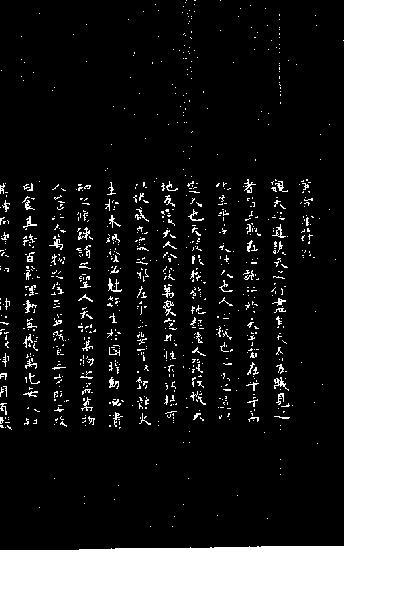 黃帝陰符經
觀天之道執天之行盡矣天有五賊見之
者昌五賊在心施行於天宇宙在乎手萬
化生乎身天性人也人心機也立天之道以
定人也天發殺機龍蛇起陸人發殺機天
地反覆天人合發萬變定基性有巧拙可
以伏藏九竅之邪在乎三要可以動靜火
生於木禍發必尅姧生於國時動必潰
知之修鍊謂之聖人天地萬物之盜萬物
人之盜人萬物之盜三盜既宜三才既安故
曰食其時百骸理動其機萬化安人知
其神而神不知神之所神日月有數